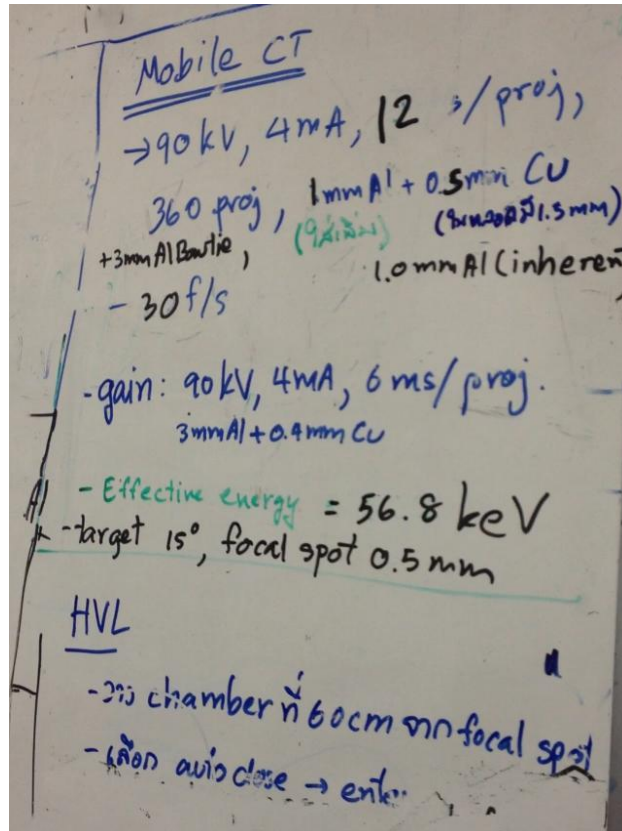 Mobile CT
→ 90 kV, 4 mA, 12 /proj,
360 proj, 1 mm Al + 0.5 mm Cu
(ใส่เพิ่ม) (ในหลอดมี 1.5 mm)
+3mm Al Bowtie, 1.0 mm Al (inheren
- 30 f/s
-gain: 90 kV, 4mA, 6 ms/proj.
3mm Al + 0.4 mm Cu
Al
- Effective energy = 56.8 keV
-target 15°, focal spot 0.5 mm
HVL
- วาง chamber ที่ 60 cm จาก focal spot
- เลือก dose →